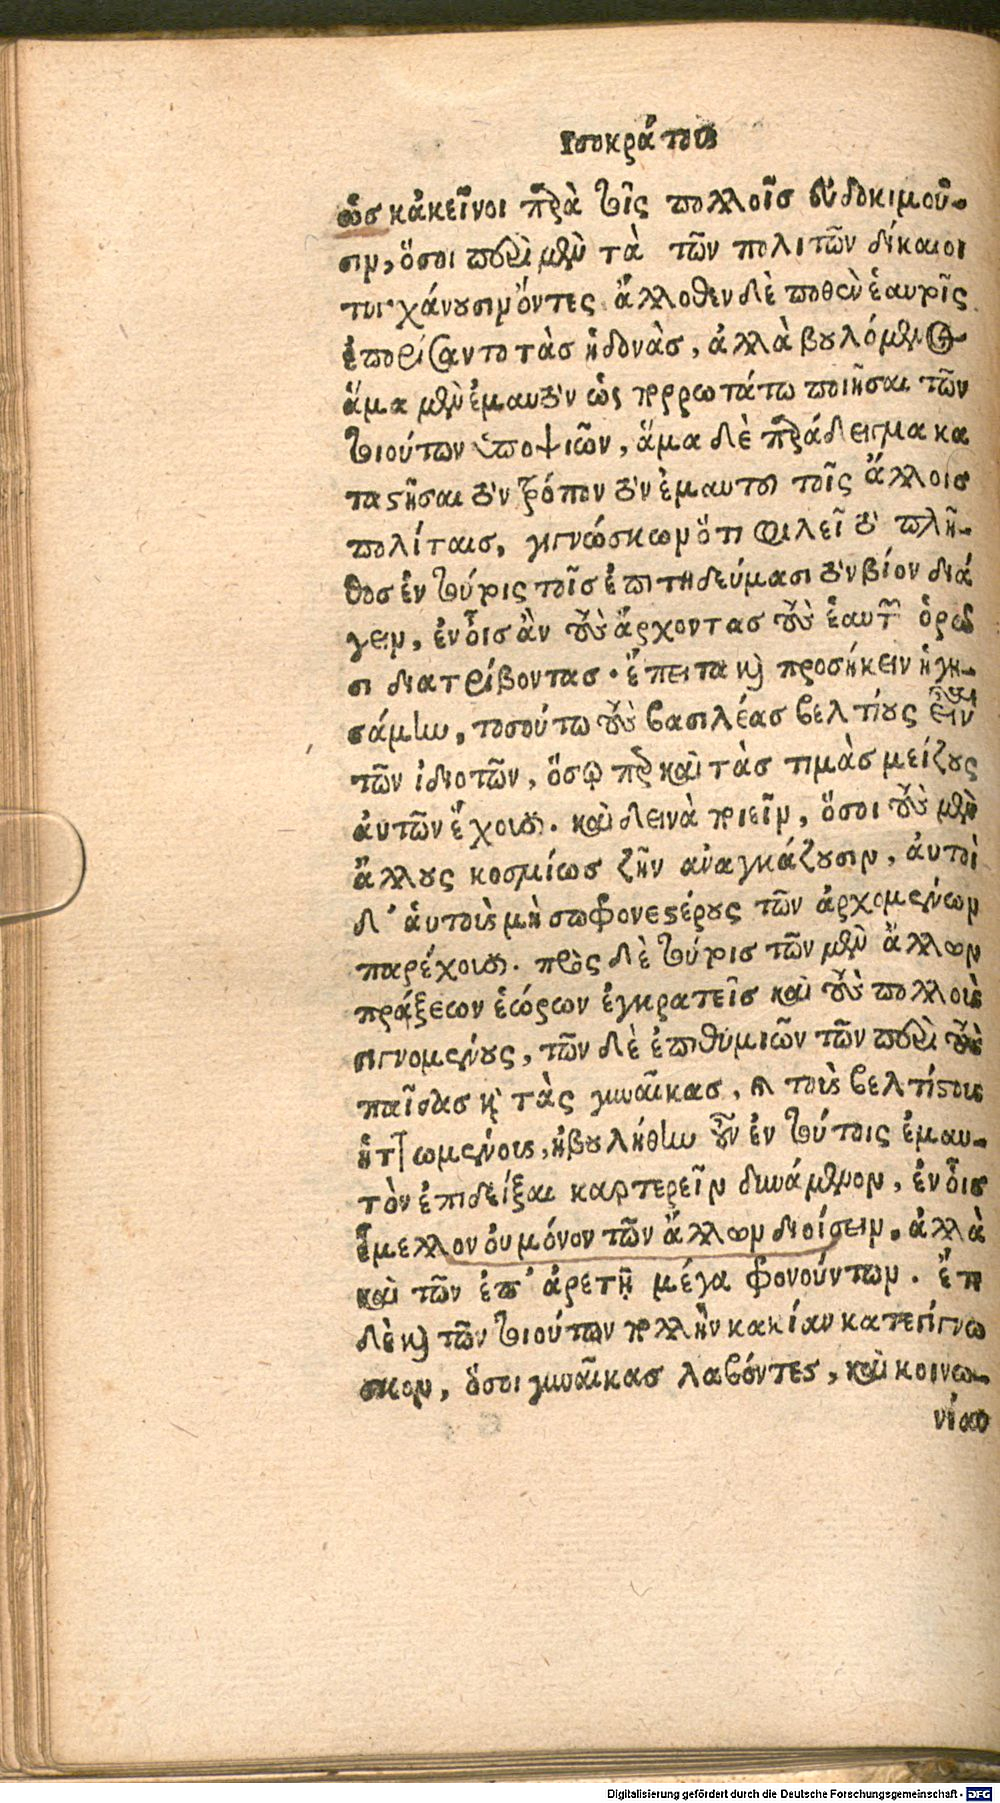 Ισοκράτους
ὡς κἀκεῖνοι παρὰ τοῖς πολλοῖς εὐδοκιμοῦ-
σιν, ὅσοι περὶ μὲν τὰ τῶν πολιτῶν δίκαιοι
τυγχάνουσιν ὄντες ἄλλοθεν δὲ ποθὲν ἑαυτοῖς
ἐπορίσαντο τὰς ἡδονὰς, ἀλλὰ βουλόμενος
ἅμα μὲν ἐμαυτὸν ὡς πορρωτάτω ποιῆσαι τῶν
τοιούτων ὑποψιῶν, ἅμα δὲ παράδειγμα κα
ταστῆσαι τὸν τρόπον τὸν ἐμαυτοῦ τοῖς ἄλλοις
πολίταις, γιγνώσκων ὅτι φιλεῖ τὸ πλῆ-
θος ἐν τούτοις τοῖς ἐπιτηδεύμασι τὸν βίον διά
γειν, ἐν οἷς ἂν τοὺς ἄρχοντας τοὺς ἑαυτῶν ὁρῶ
σι διατρίβοντας. ἔπειτα καὶ προσήκειν ἡγη-
σάμην, τοσούτω τοὺς βασιλέας βελτίους εἶναι
τῶν ἰδιοτῶν, ὅσῳ περ καὶ τὰς τιμὰς μείζους
ἀυτῶν ἔχουσι. καὶ δεινὰ ποιεῖν, ὅσοι τοὺς μὲν
ἄλλους κοσμίως ζῆν ἀναγκάζουσιν, ἀυτοὶ
δ' ἁυτοὺς μὴ σωφρονεστέρους τῶν ἀρχομένων
παρέχουσι. πρὸς δὲ τούτοις τῶν μὲν ἄλλων
πράξεων ἑώρων ἐγκρατεῖς καὶ τοὺς πολλοὺς
γιγνομένους, τῶν δὲ ἐπιθυμιῶν τῶν περὶ τοὺς
παῖδας καὶ τὰς γυναῖκας, καὶ τοὺς βελτίστους
ἡττωμένους, ἠβουλήθην οὖν ἐν τούτοις ἐμαυ-
τὸν ἐπιδεῖξαι καρτερεῖν δυνάμενον, ἐν οἷς
ἔμελλον ὀυ μόνον τῶν ἄλλων διοίσειν, ἀλλὰ
καὶ τῶν ἐπ' ἀρετῇ μέγα φρονούντων. ἔτι
δὲ καὶ τῶν τοιούτων πολλὴν κακίαν κατεγίγνω
σκον, ὅσοι γυναῖκας λαβόντες, καὶ κοινω-
νίαν
Digitalisierung gefördert durch die Deutsche Forschungsgemeinschaft - DFG